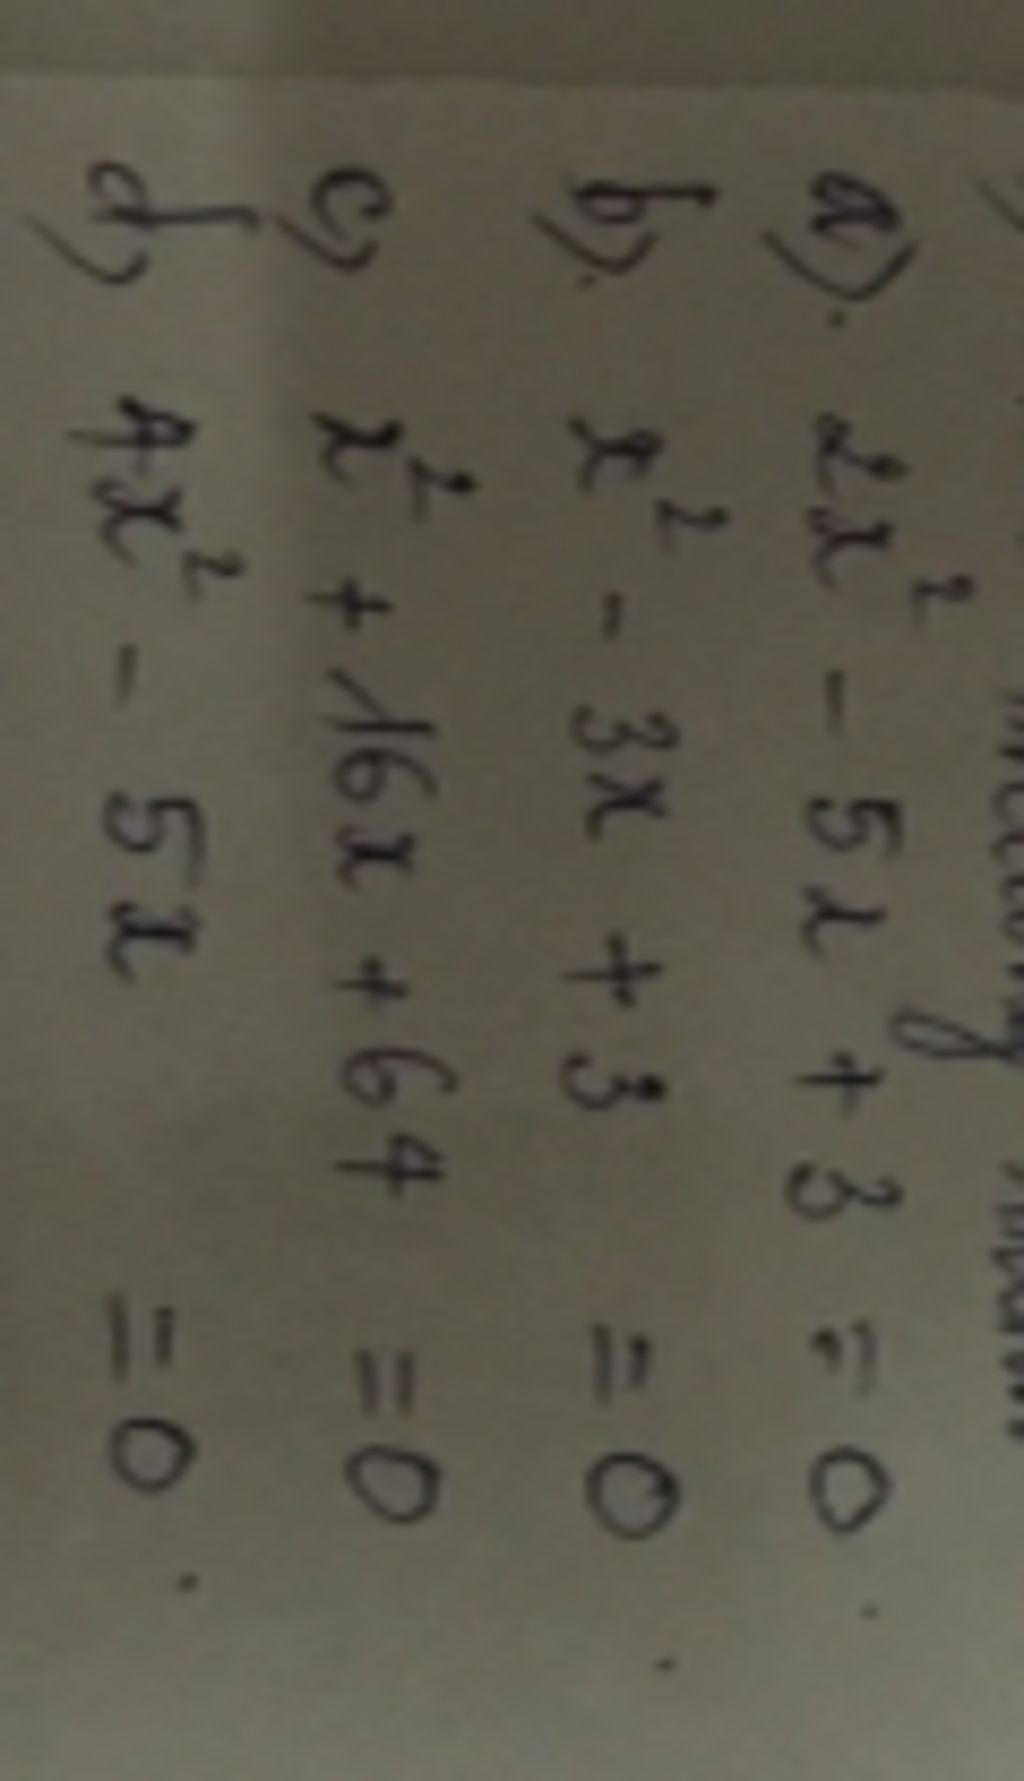 a). 2x² - 5x + 3 = 0
b). x² - 3x + 3 = 0
c) x² + 16x + 64 = 0
d) 4x² - 5x = 0